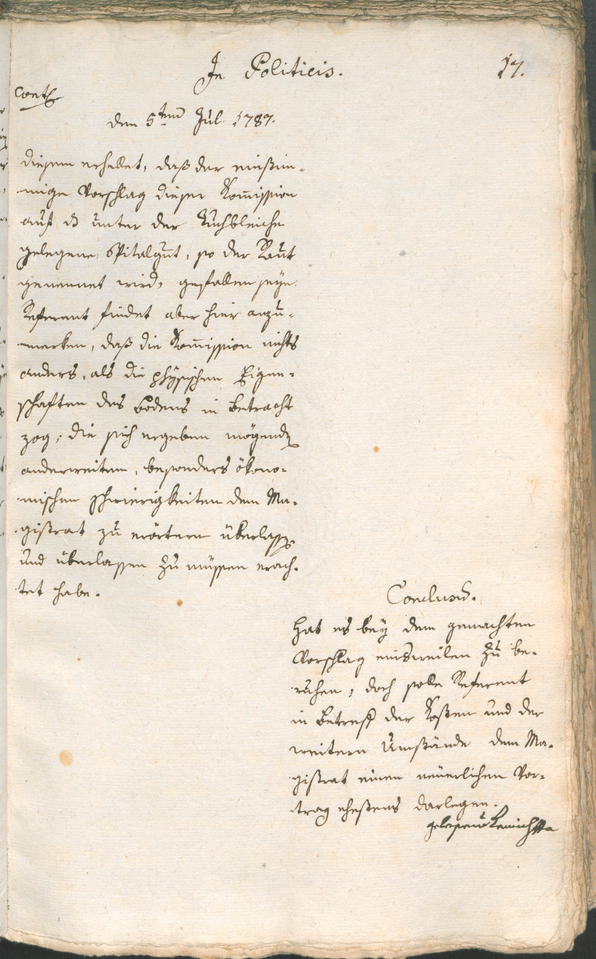 In Politicis.
17.
Cont
den 5ten Jul. 1787.
diesem erhellet, daß der einstim-
mige Vorschlag dieser Kom̅ission
auf unter der Tuchbleiche
gelegene Spitalgut, so der Raut
genennet wird, gefallen seye.
Referent findet aber hier anzu-
merken, daß die Kom̅ission nichts
anders, als die physischen Eigen-
schaften des Bodens in Betracht
zog; die sich ergeben mögende
anderweiten, besonders ökono-
mischen Schwierigkeiten dem Ma-
gistrat zu erörtern überlassen
und überlassen zu müssen erach-
tet habe.
Conclus.
Hat es bey dem gemachten
Vorschlag einsweilen zu be-
ruhen, doch solle Referent
in Betreff der Kosten und der
weitern Umstände dem Ma-
gistrat einen neüerlichen Vor-
trag ehestens darlegen.